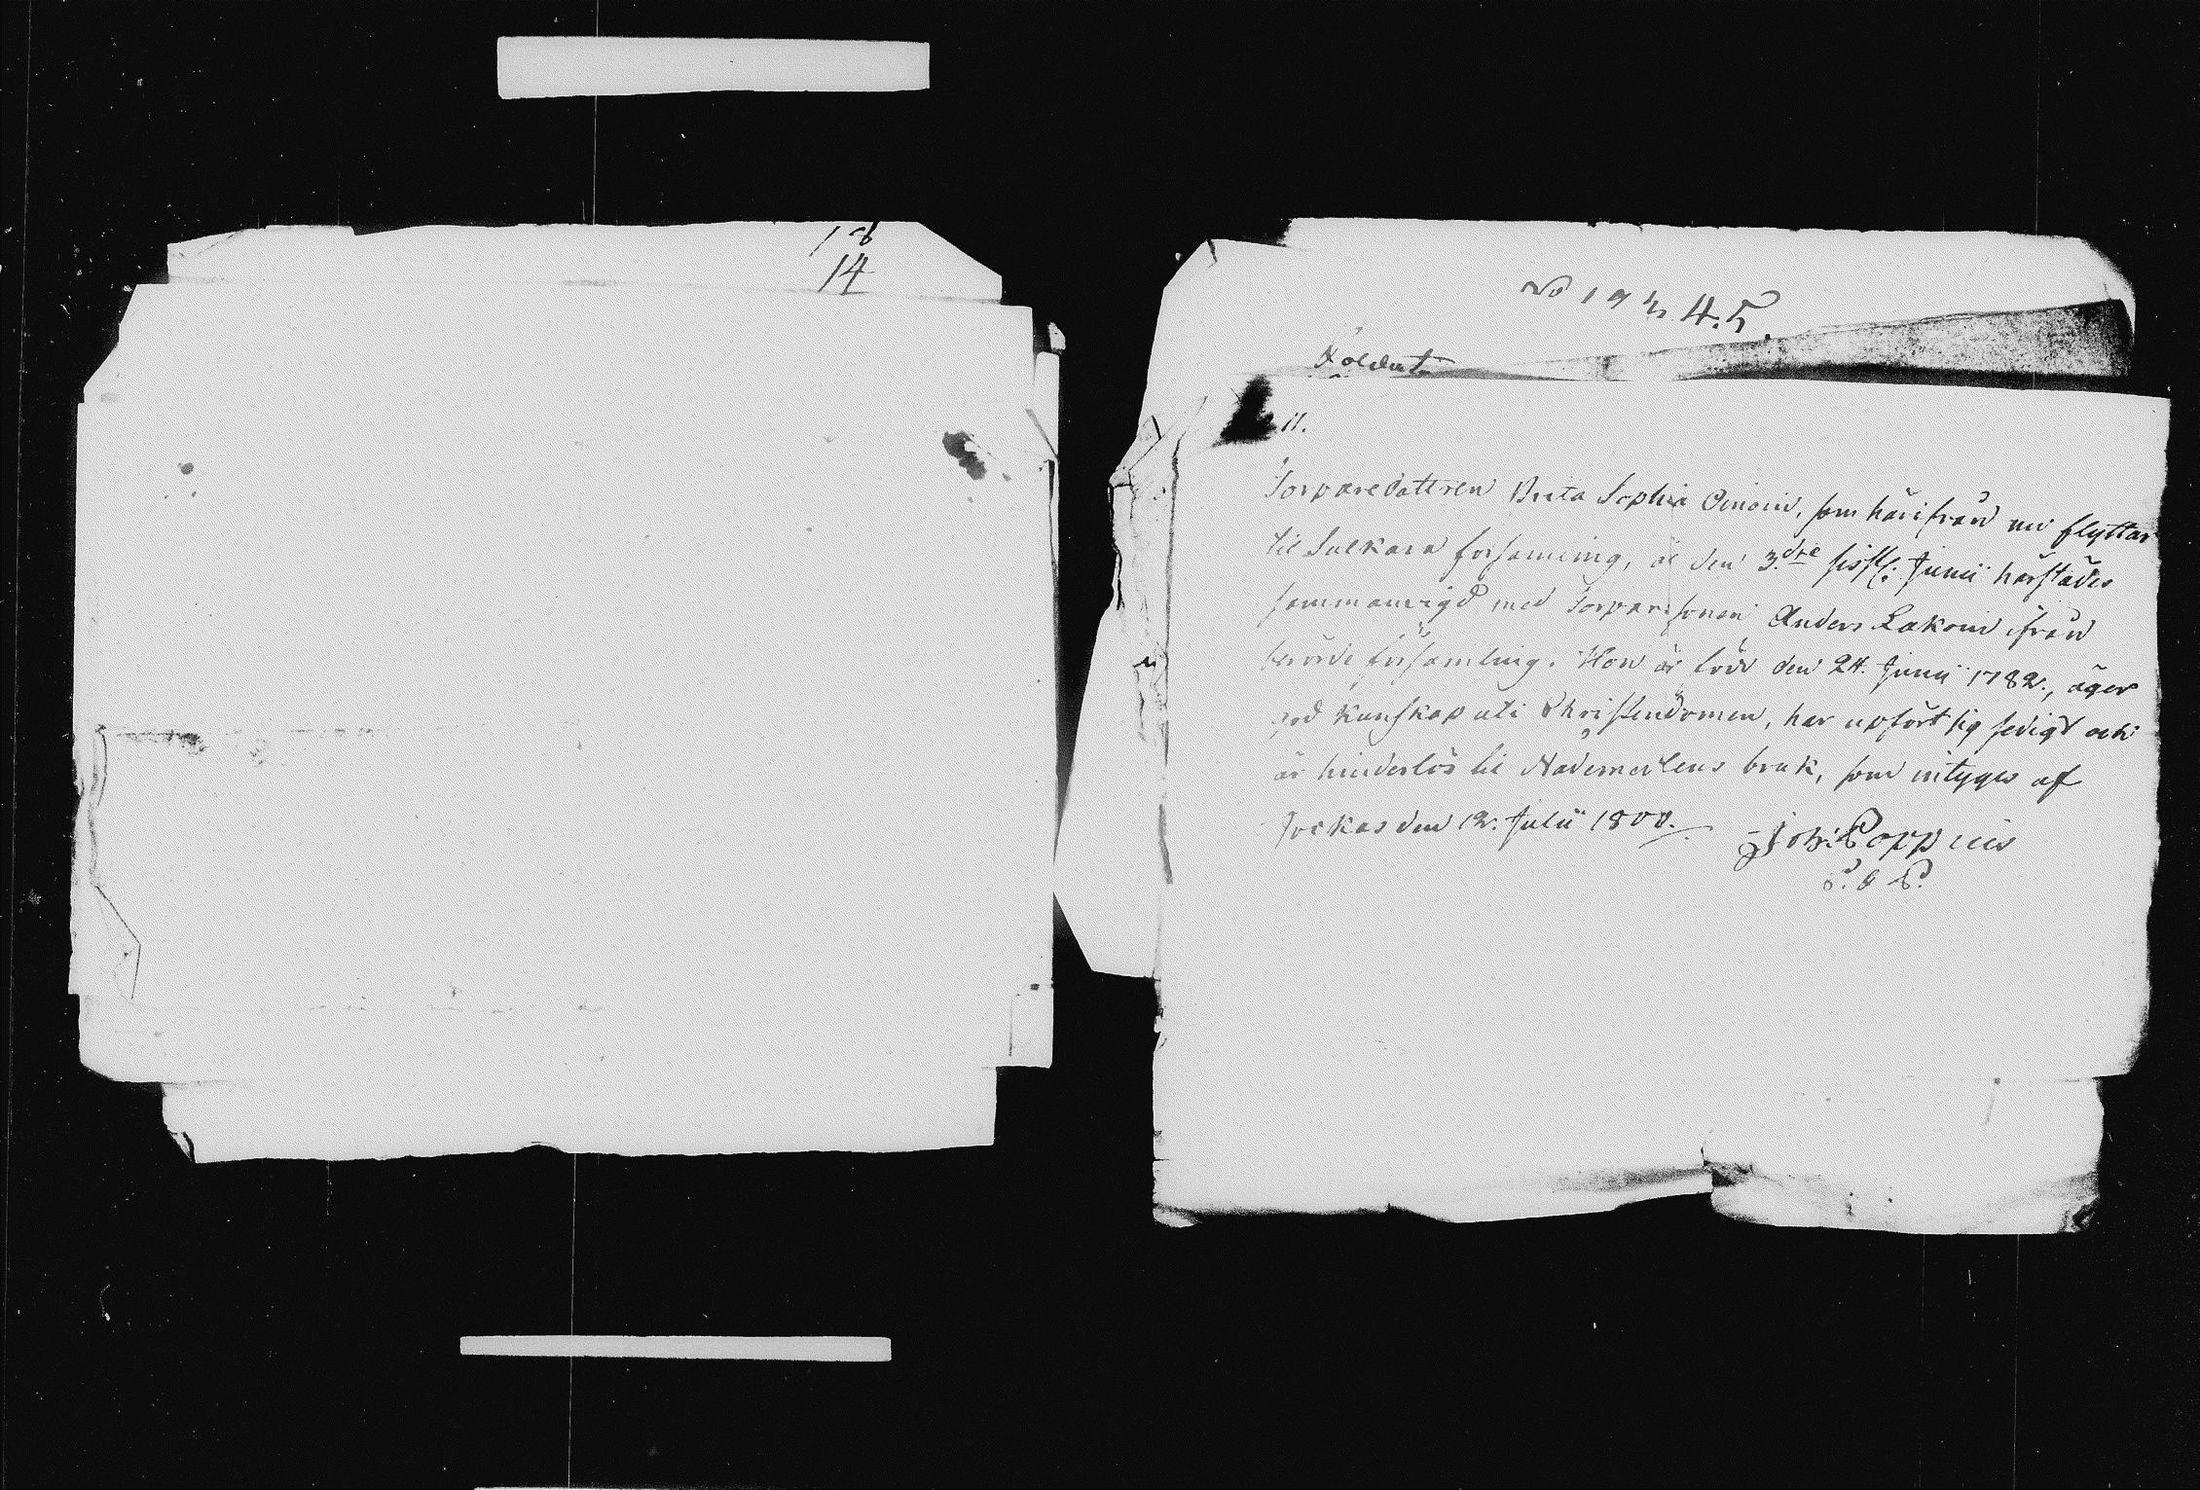 18
14
No 1 2 3. 4. 5.
Soldat
11.
Torparedottren Brita Sophia Oinoin, som härifrån nu flyttar
til Sulkava församling, är den 3.dre sistl: Junii härstädes
sammanvigd med Torparesonen Anders Lakoin ifrån
berörde församling. Hon är född den 24. Junii 1782., äger
god kunskap uti Christendomen, har upfört sig sedigt och
är hinderlös til Nådemedlens bruk, som intygas af
Jockas den 12. Julii 1808.
Joh: Poppius